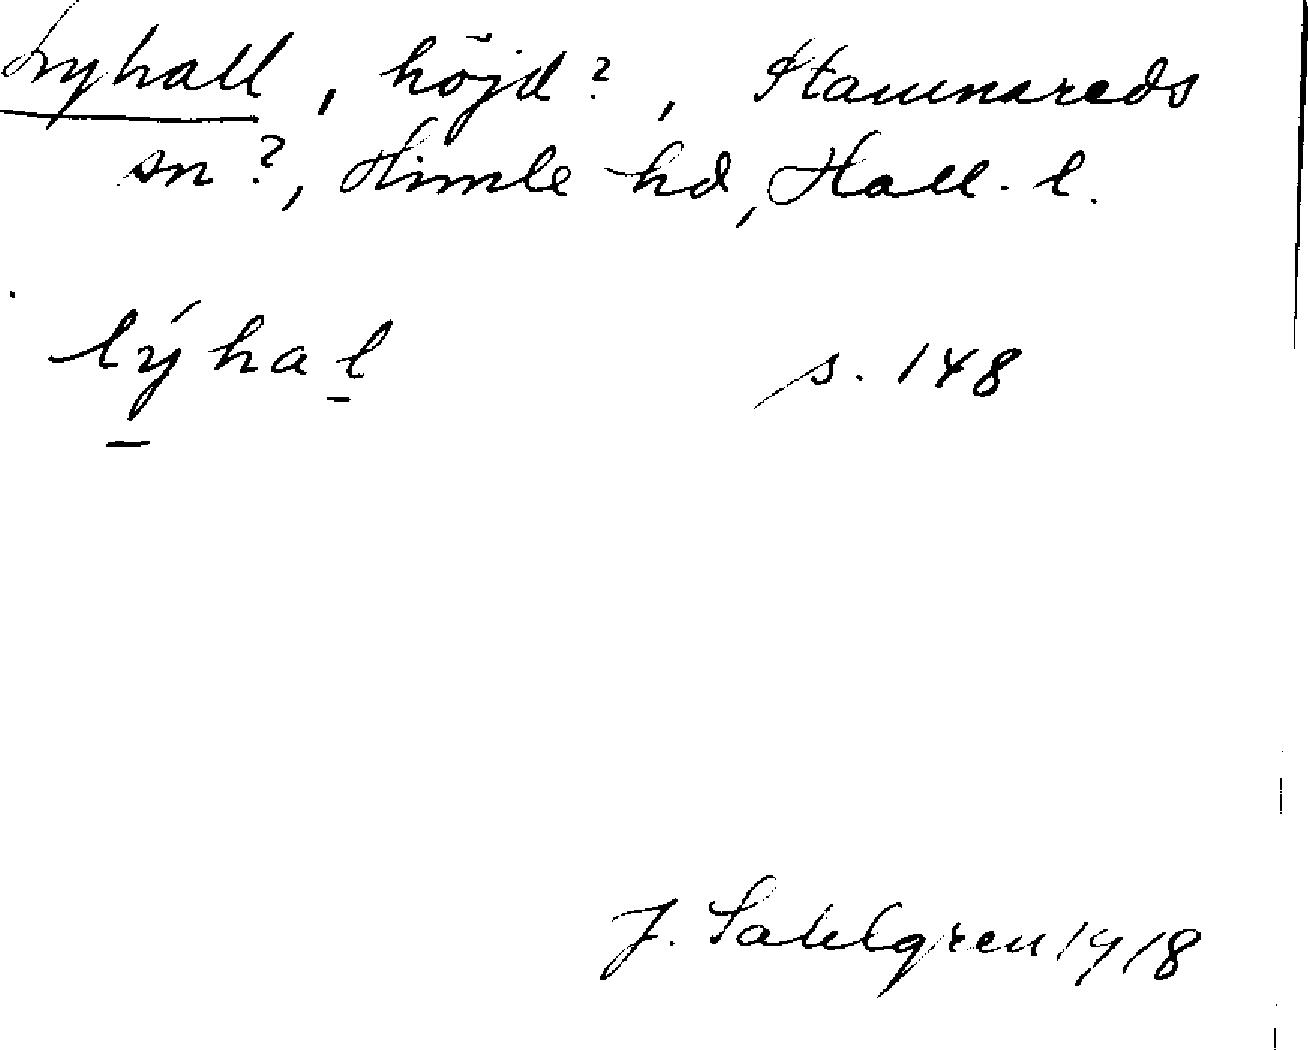 Lyhall, höjd?, Stamnareds
sn?, Himle hd, Hall. l.
lýhal s. 148
J. Sahlgren 1918